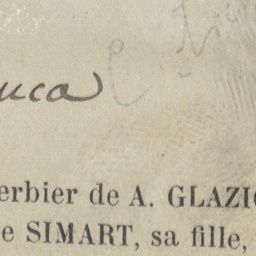 uca
erbier de A. GLAZIO
e SIMART, sa fille,